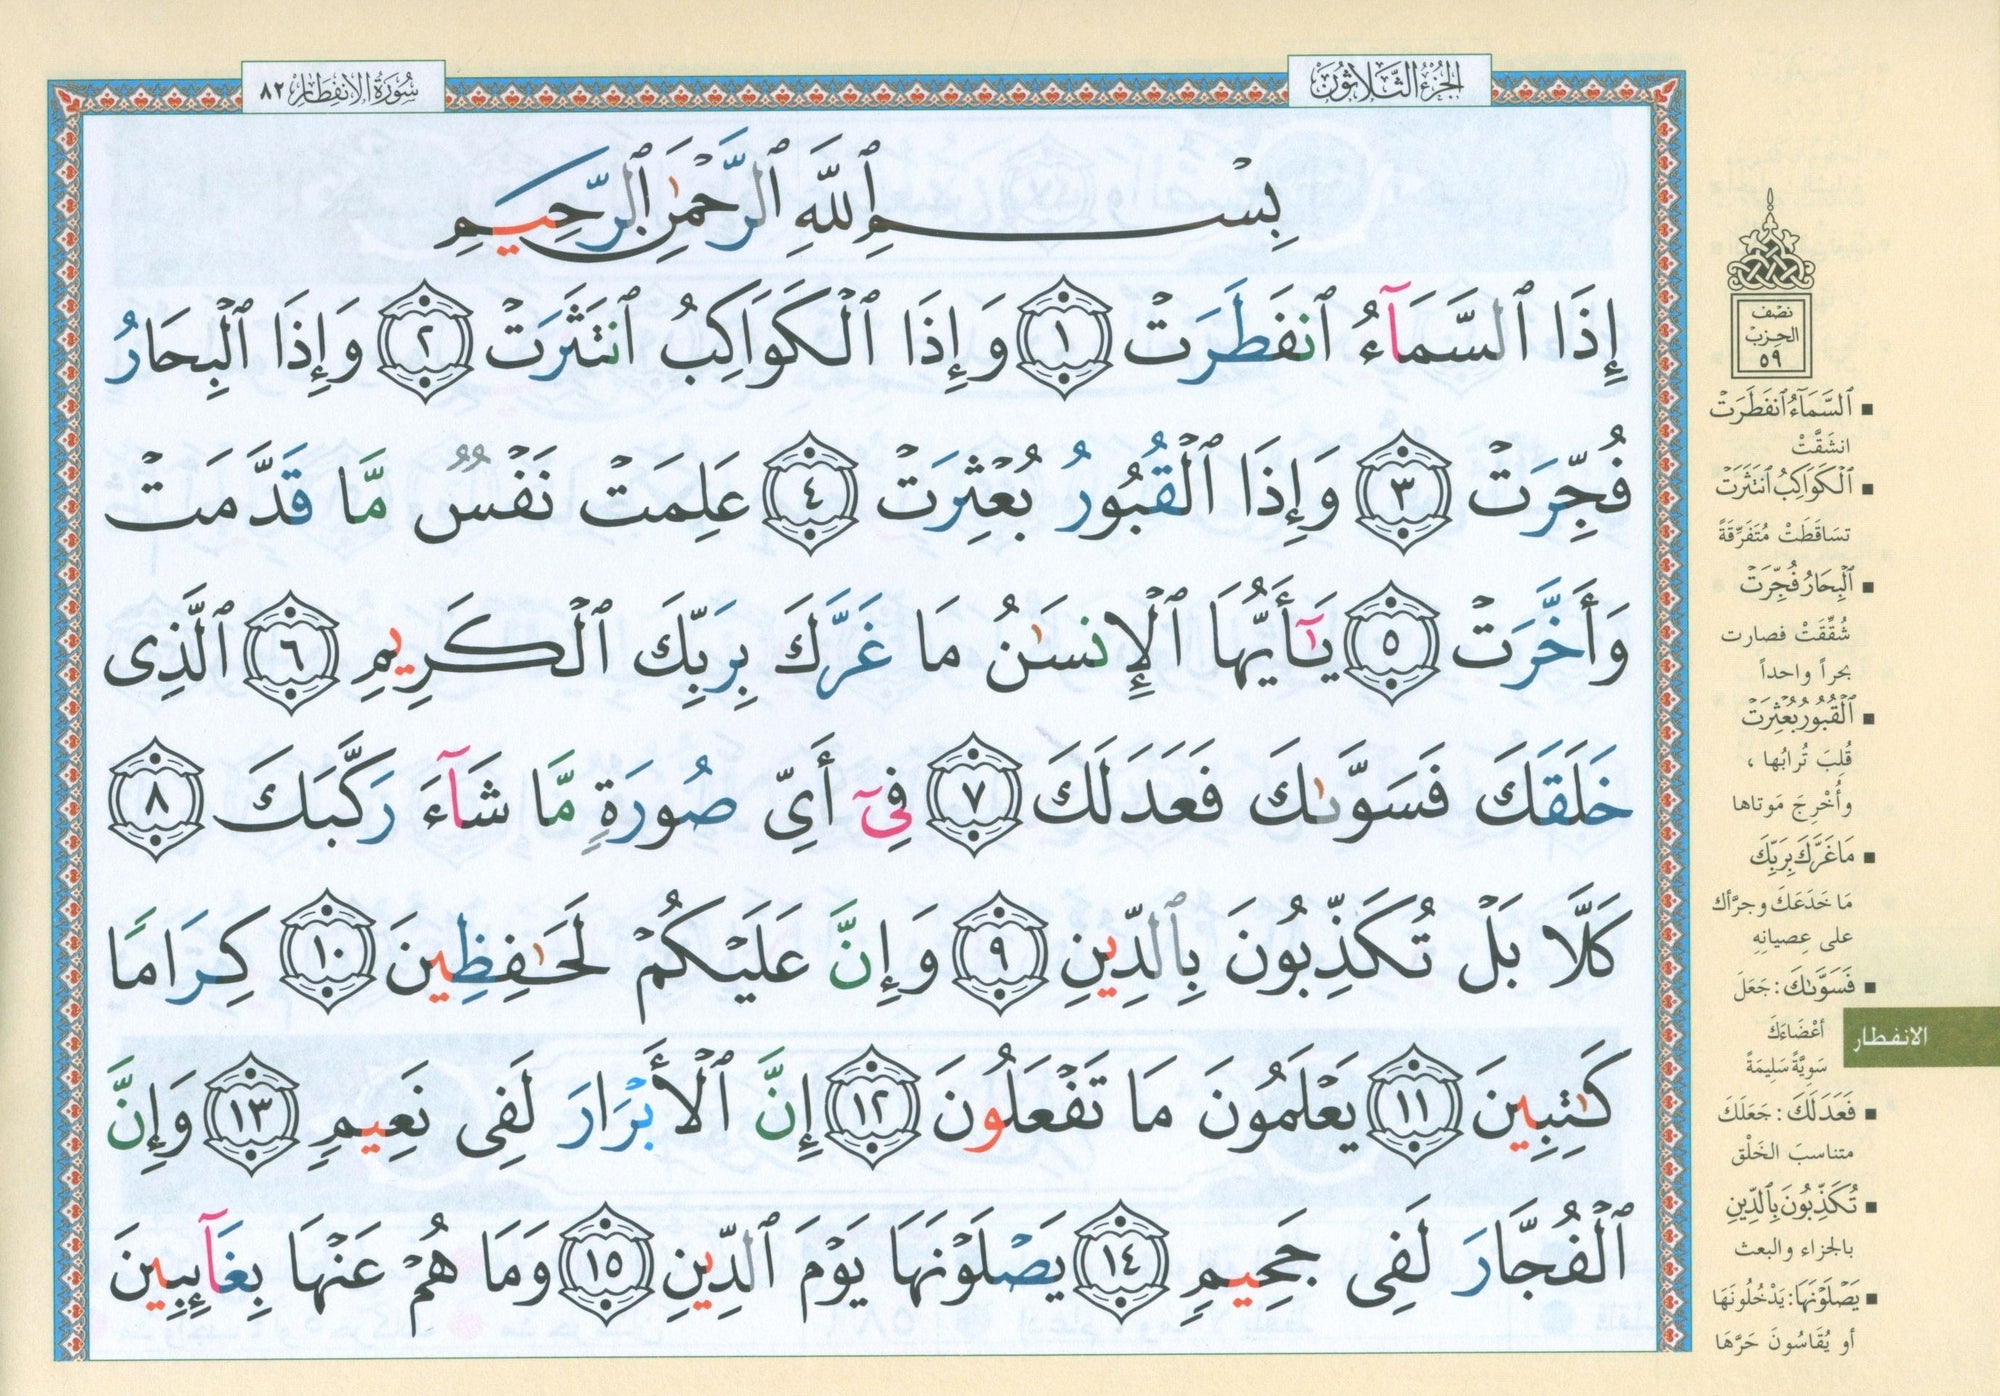 الجزء الثلاثون
سورة الانفطار ٨٢
بِسْمِ ٱللَّهِ ٱلرَّحْمَٰنِ ٱلرَّحِيمِ
إِذَا ٱلسَّمَآءُ ٱنفَطَرَتْ ١ وَإِذَا ٱلْكَوَاكِبُ ٱنتَثَرَتْ ٢ وَإِذَا ٱلْبِحَارُ
فُجِّرَتْ ٣ وَإِذَا ٱلْقُبُورُ بُعْثِرَتْ ٤ عَلِمَتْ نَفْسٌ مَّا قَدَّمَتْ
وَأَخَّرَتْ ٥ يَٰٓأَيُّهَا ٱلْإِنسَٰنُ مَا غَرَّكَ بِرَبِّكَ ٱلْكَرِيمِ ٦ ٱلَّذِى
خَلَقَكَ فَسَوَّىٰكَ فَعَدَلَكَ ٧ فِىٓ أَىِّ صُورَةٍ مَّا شَآءَ رَكَّبَكَ ٨
كَلَّا بَلْ تُكَذِّبُونَ بِٱلدِّينِ ٩ وَإِنَّ عَلَيْكُمْ لَحَٰفِظِينَ ١٠ كِرَامًا
كَٰتِبِينَ ١١ يَعْلَمُونَ مَا تَفْعَلُونَ ١٢ إِنَّ ٱلْأَبْرَارَ لَفِى نَعِيمٍ ١٣ وَإِنَّ
ٱلْفُجَّارَ لَفِى جَحِيمٍ ١٤ يَصْلَوْنَهَا يَوْمَ ٱلدِّينِ ١٥ وَمَا هُمْ عَنْهَا بِغَآئِبِينَ
نصف
الحزب
٥٩
▪ ٱلسَّمَآءُ ٱنفَطَرَتْ
انشَقَّتْ
▪ ٱلْكَوَاكِبُ ٱنتَثَرَتْ
تسَاقَطَتْ مُتَفَرِّقَةً
▪ ٱلْبِحَارُ فُجِّرَتْ
شُقِّقَتْ فصارت
بحراً واحداً
▪ ٱلْقُبُورُ بُعْثِرَتْ
قُلِبَ تُرابُها ،
وأُخْرِجَ مَوتاها
▪ مَا غَرَّكَ بِرَبِّكَ
مَا خَدَعَكَ وجرَّأك
على عِصيانِهِ
▪ فَسَوَّىٰكَ : جَعَلَ
أعْضَاءَكَ
سَوِيَّةً سَلِيمَةً
▪ فَعَدَلَكَ : جَعَلَكَ
متناسبَ الخَلْق
▪ تُكَذِّبُونَ بِٱلدِّينِ
بالجزاء والبعث
▪ يَصْلَوْنَهَا : يَدْخُلُونَهَا
أو يُقَاسُونَ حَرَّهَا
الانفطار